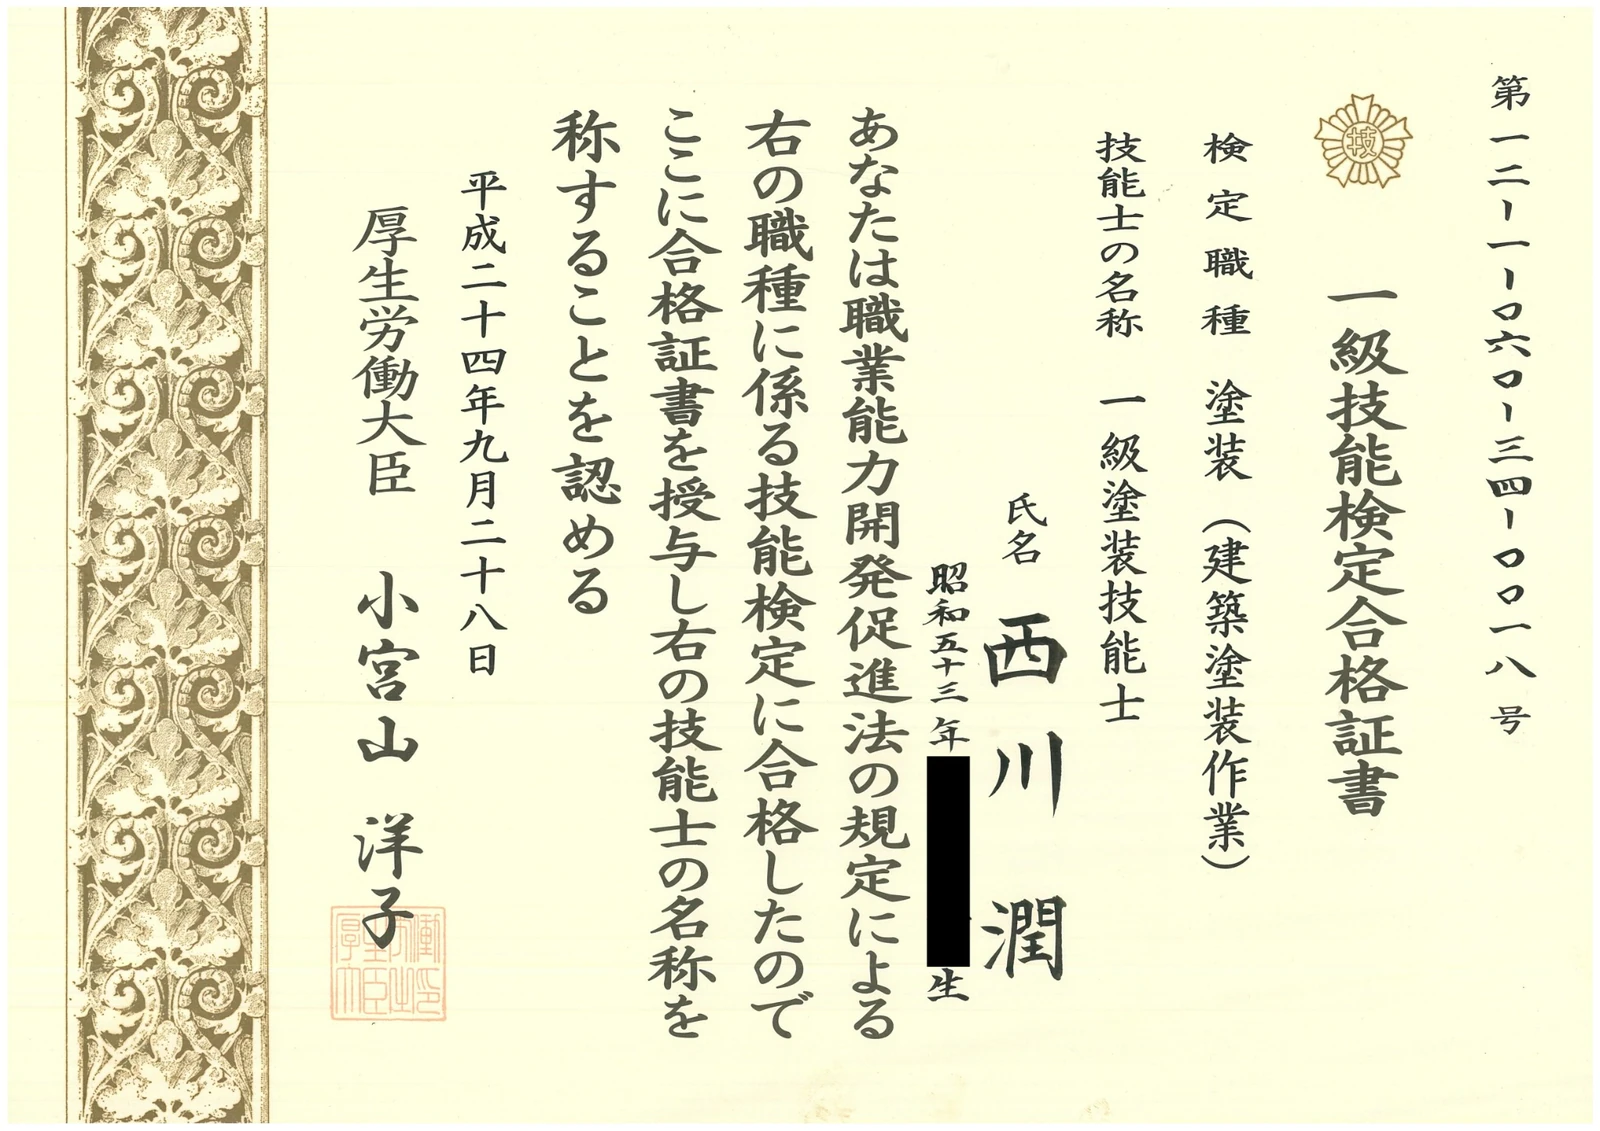 第一二ー一ー〇六〇ー三四ー〇〇一八号
技
一級技能検定合格証書
検定職種 塗装（建築塗装作業）
技能士の名称 一級塗装技能士
氏名 西川潤
昭和五十三年 生
あなたは職業能力開発促進法の規定による
右の職種に係る技能検定に合格したので
ここに合格証書を授与し右の技能士の名称を
称することを認める
平成二十四年九月二十八日
厚生労働大臣 小宮山 洋子